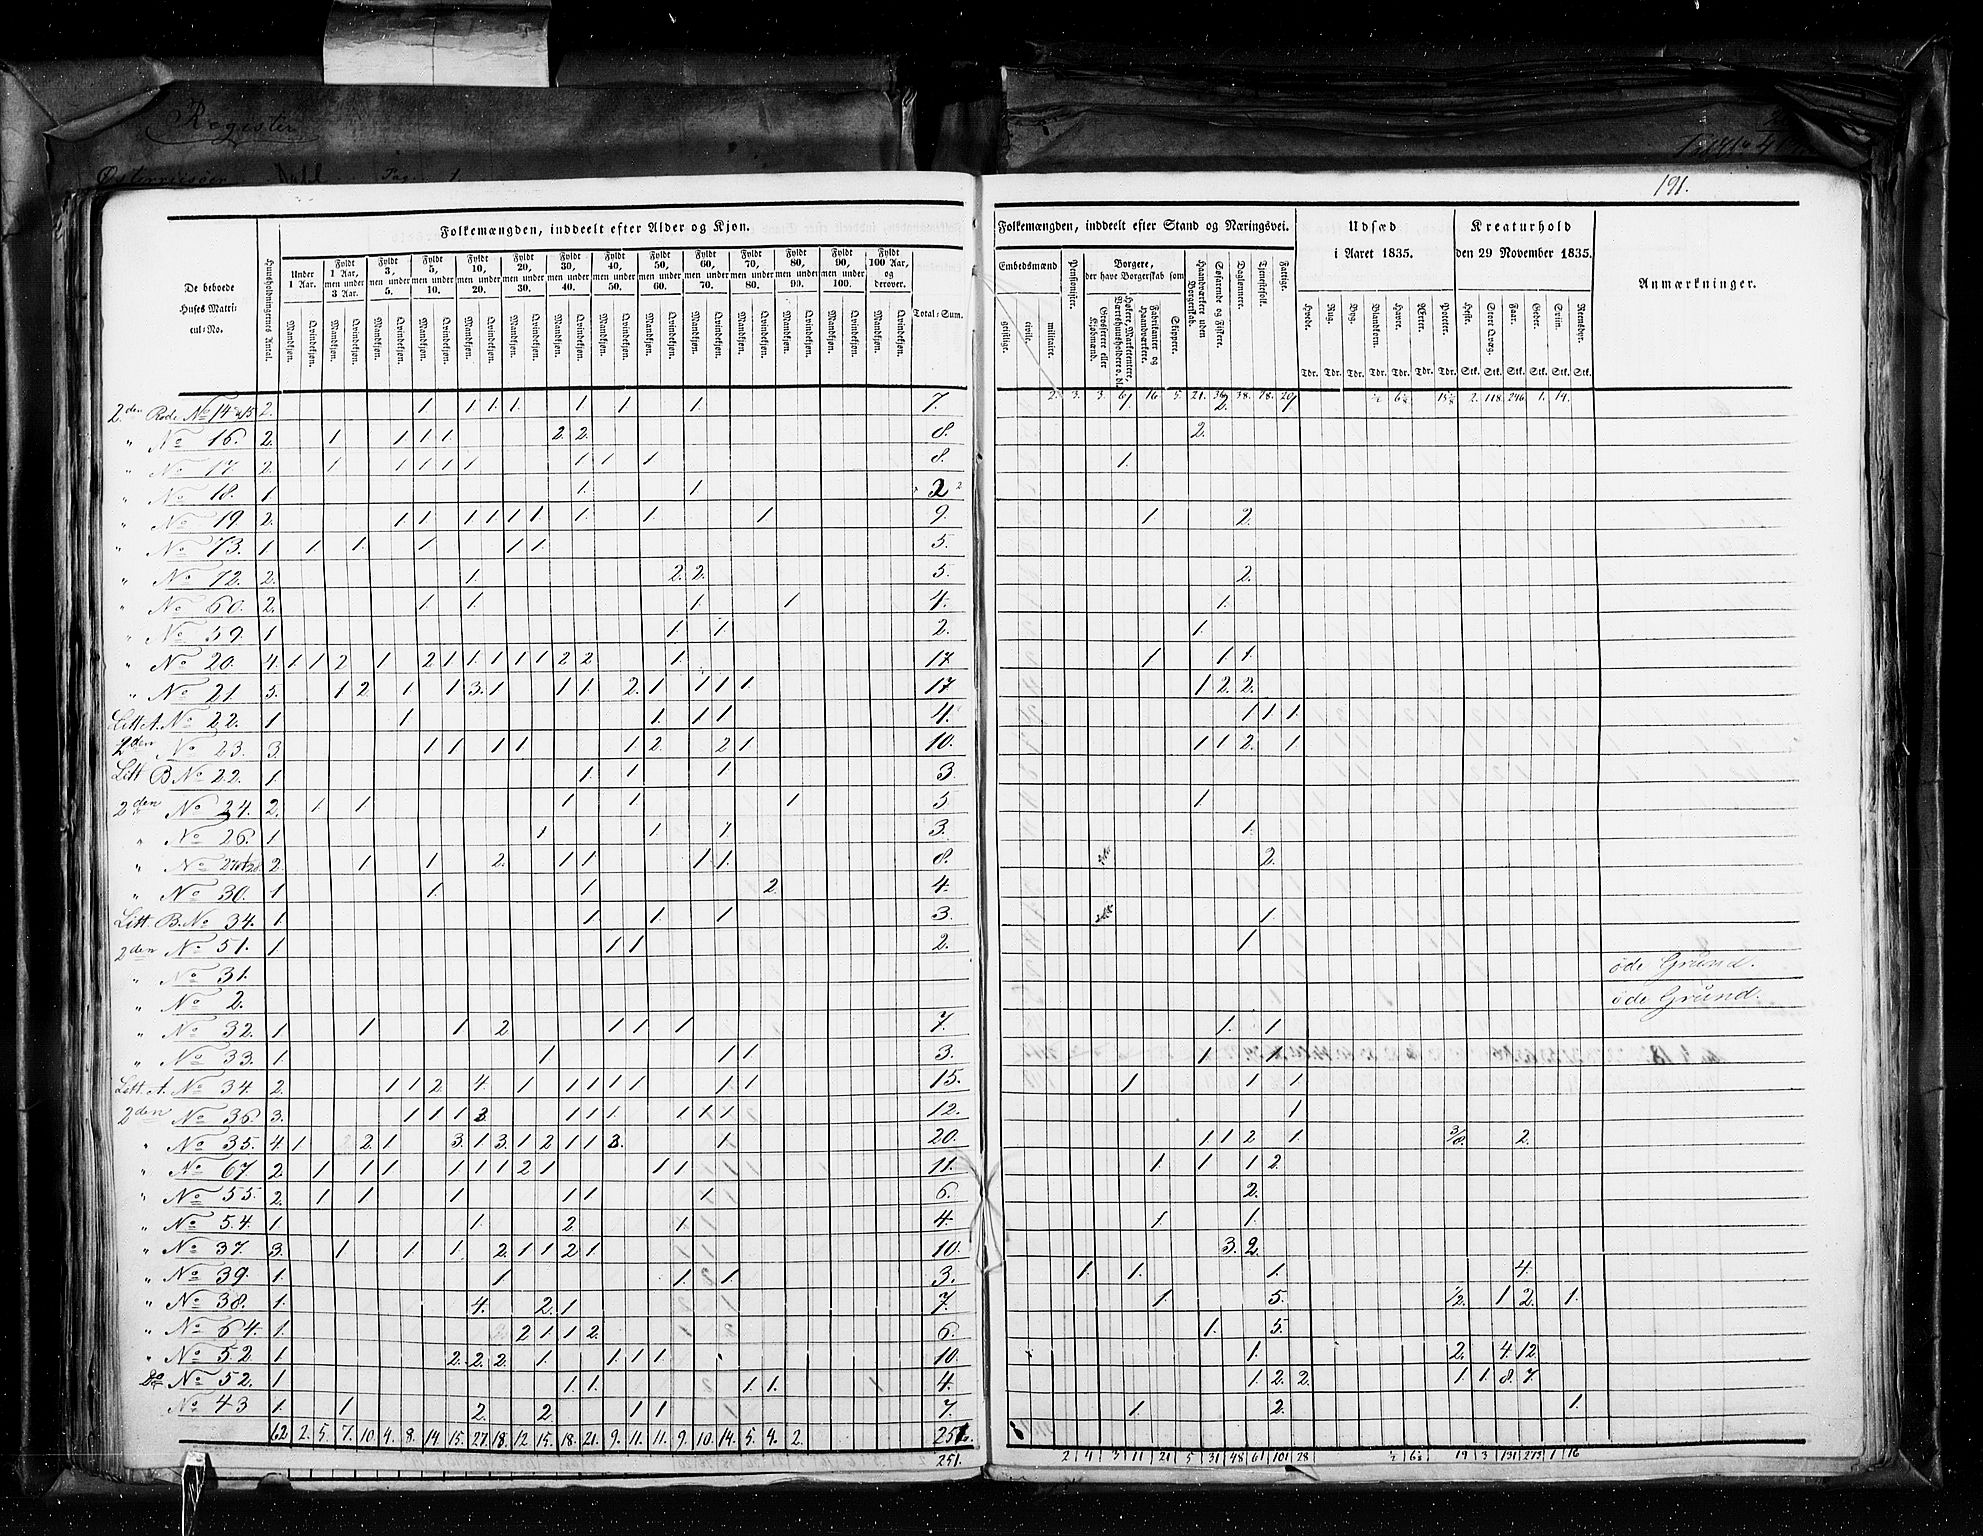 Register
Dahl Pag. 1
191.
Folkemængden, inddeelt efter Alder og Kjøn.
De beboede Huses Matricul-No.
Huusholdningernes Antal.
Under 1 Aar.
Fyldt 1 Aar, men under 3 Aar.
Fyldt 3, men under 5.
Fyldt 5, men under 10.
Fyldt 10, men under 20.
Fyldt 20, men under 30.
Fyldt 30, men under 40.
Fyldt 40, men under 50.
Fyldt 50, men under 60.
Fyldt 60, men under 70.
Fyldt 70, men under 80.
Fyldt 80, men under 90.
Fyldt 90, men under 100.
Fyldt 100 Aar, og derover.
Mandkjøn. Qvindekjøn. Mandkjøn. Qvindekjøn. Mandkjøn. Qvindekjøn. Mandkjøn. Qvindekjøn. Mandkjøn. Qvindekjøn. Mandkjøn. Qvindekjøn. Mandkjøn. Qvindekjøn. Mandkjøn. Qvindekjøn. Mandkjøn. Qvindekjøn. Mandkjøn. Qvindekjøn. Mandkjøn. Qvindekjøn. Mandkjøn. Qvindekjøn. Mandkjøn. Qvindekjøn. Mandkjøn. Qvindekjøn.
Total-Sum.
2den Rode No 14 2. 1. 1. 1. 1. 1. 1. 1. 7.
" No 16. 2. 1 1 1 1 2. 2. 8.
" No 17. 2. 1 1 1 1 1 1 1 1 8.
" No 18. 1. 1. 1. 2
" No 19 2. 1 1 1 1 1 1 1. 1 1 9.
" No 73. 1 1 1. 1 1 1. 5.
" No 72. 2. 1. 2. 2. 5.
" No 60. 2. 1. 1. 1. 1 4.
" No 59. 1 1. 1. 2.
" No 20. 4. 1. 1 2 1 2 1 1. 1 1 1 2 2 1. 17
" No 21. 5. 1 2. 1 1 3. 1 1 1. 2. 1 1 1 1 17
Litt A. No 22. 1 1 1. 1 1 4.
2den No 23. 3. 1 1 1 1 1 2. 2 1 10.
Litt B No 22. 1 1. 1 1 3.
2den No 24. 2. 1 1 1 1 1 5
" No 26. 1 1 1 1 3.
" No 27 2. 1 1 2. 1 1 1 1. 8.
" No 30. 1 1. 1 2. 4.
Litt. B. No 34. 1 1 1. 1 3.
2den No 51. 1 1 1. 2.
" No 31.
" No 2.
" No 32. 1. 1 1. 2 1 1 1 7.
" No 33. 1. 1 1 1 3.
Litt. A. No 34. 2. 1 1 2 4. 1 1 1 1 1 1 1 15.
2den No 36. 3. 1 1 1 3 1 1 1 1 1 1 12.
" No 35. 4. 1 2. 1 3. 1 3. 1 2 1 1 3. 1. 20.
" No 67. 2 1 1 1 1 1 1 2 1 1 1 11.
" No 55. 2. 1 1 1 1 1 1 6.
" No 54. 1. 1. 2. 1. 4.
" No 37. 3. 1 1 1. 2 1 1 2 1 10.
" No 39. 1. 1 1. 1. 3.
" No 38. 1. 4. 2. 1 7.
" No 64. 1. 2 1. 1 2. 6.
" No 52. 1 2. 2. 2 1. 1. 1 1 10.
Do No 52. 1 1. 1. 1. 1. 4.
No 43 1. 1 2. 2. 1 1 7.
62 2. 5. 7. 10. 4. 8. 14. 15. 27. 18. 12. 15. 18. 21. 9. 11. 11. 9. 10. 14. 5. 4. 2. 251.
251.
Folkemængden, inddeelt efter Stand og Næringsvei.
Udsæd i Aaret 1835.
Kreaturhold den 29 November 1835.
Anmærkninger.
Embedsmænd
geistlige. civile. militaire.
Pensionister.
Borgere, der have Borgerskab som
Grosserere eller Kjøbmænd.
Høkere, Marketentere, Værtshuusholdere o. dl.
Fabrikanter og Haandværkere.
Skippere.
Haandværkere uden Borgerskab.
Søfarende og Fiskere.
Daglønnere.
Tjenestefolk.
Fattige.
Hvede. Rug. Byg. Blandkorn. Havre. Ærter. Poteter.
Tdr. Tdr. Tdr. Tdr. Tdr. Tdr. Tdr.
Heste. Stort Qvæg. Faar. Geder. Sviin. Reensdyr.
Stk. Stk. Stk. Stk. Stk. Stk.
2. 3. 3. 6. 16. 5. 21. 36. 38. 78. 20 15⅛ 2. 118. 246 1. 14.
1. 2. 1
2.
1.
1 2.
2.
1.
1.
1 1. 1.
1 2. 2.
1 1 1
1 1 2. 1
1
1.
2.
1.
1
öde Grund.
öde Grund.
1. 1.
1 1
1 1 1
1
1. 1 2 1. 3/8. 2.
1. 1 1 2.
2.
1. 1.
3. 2.
1. 1. 1. 4.
1. 5. 1/2. 1 2. 1.
1. 5.
1. 2. 4. 12.
1 2. 2. 1 1 8. 7.
1. 2. 1.
2 4 3 11 21 5 31 48 61 101 28 ½ 6½ 19 3 131 273 1 16